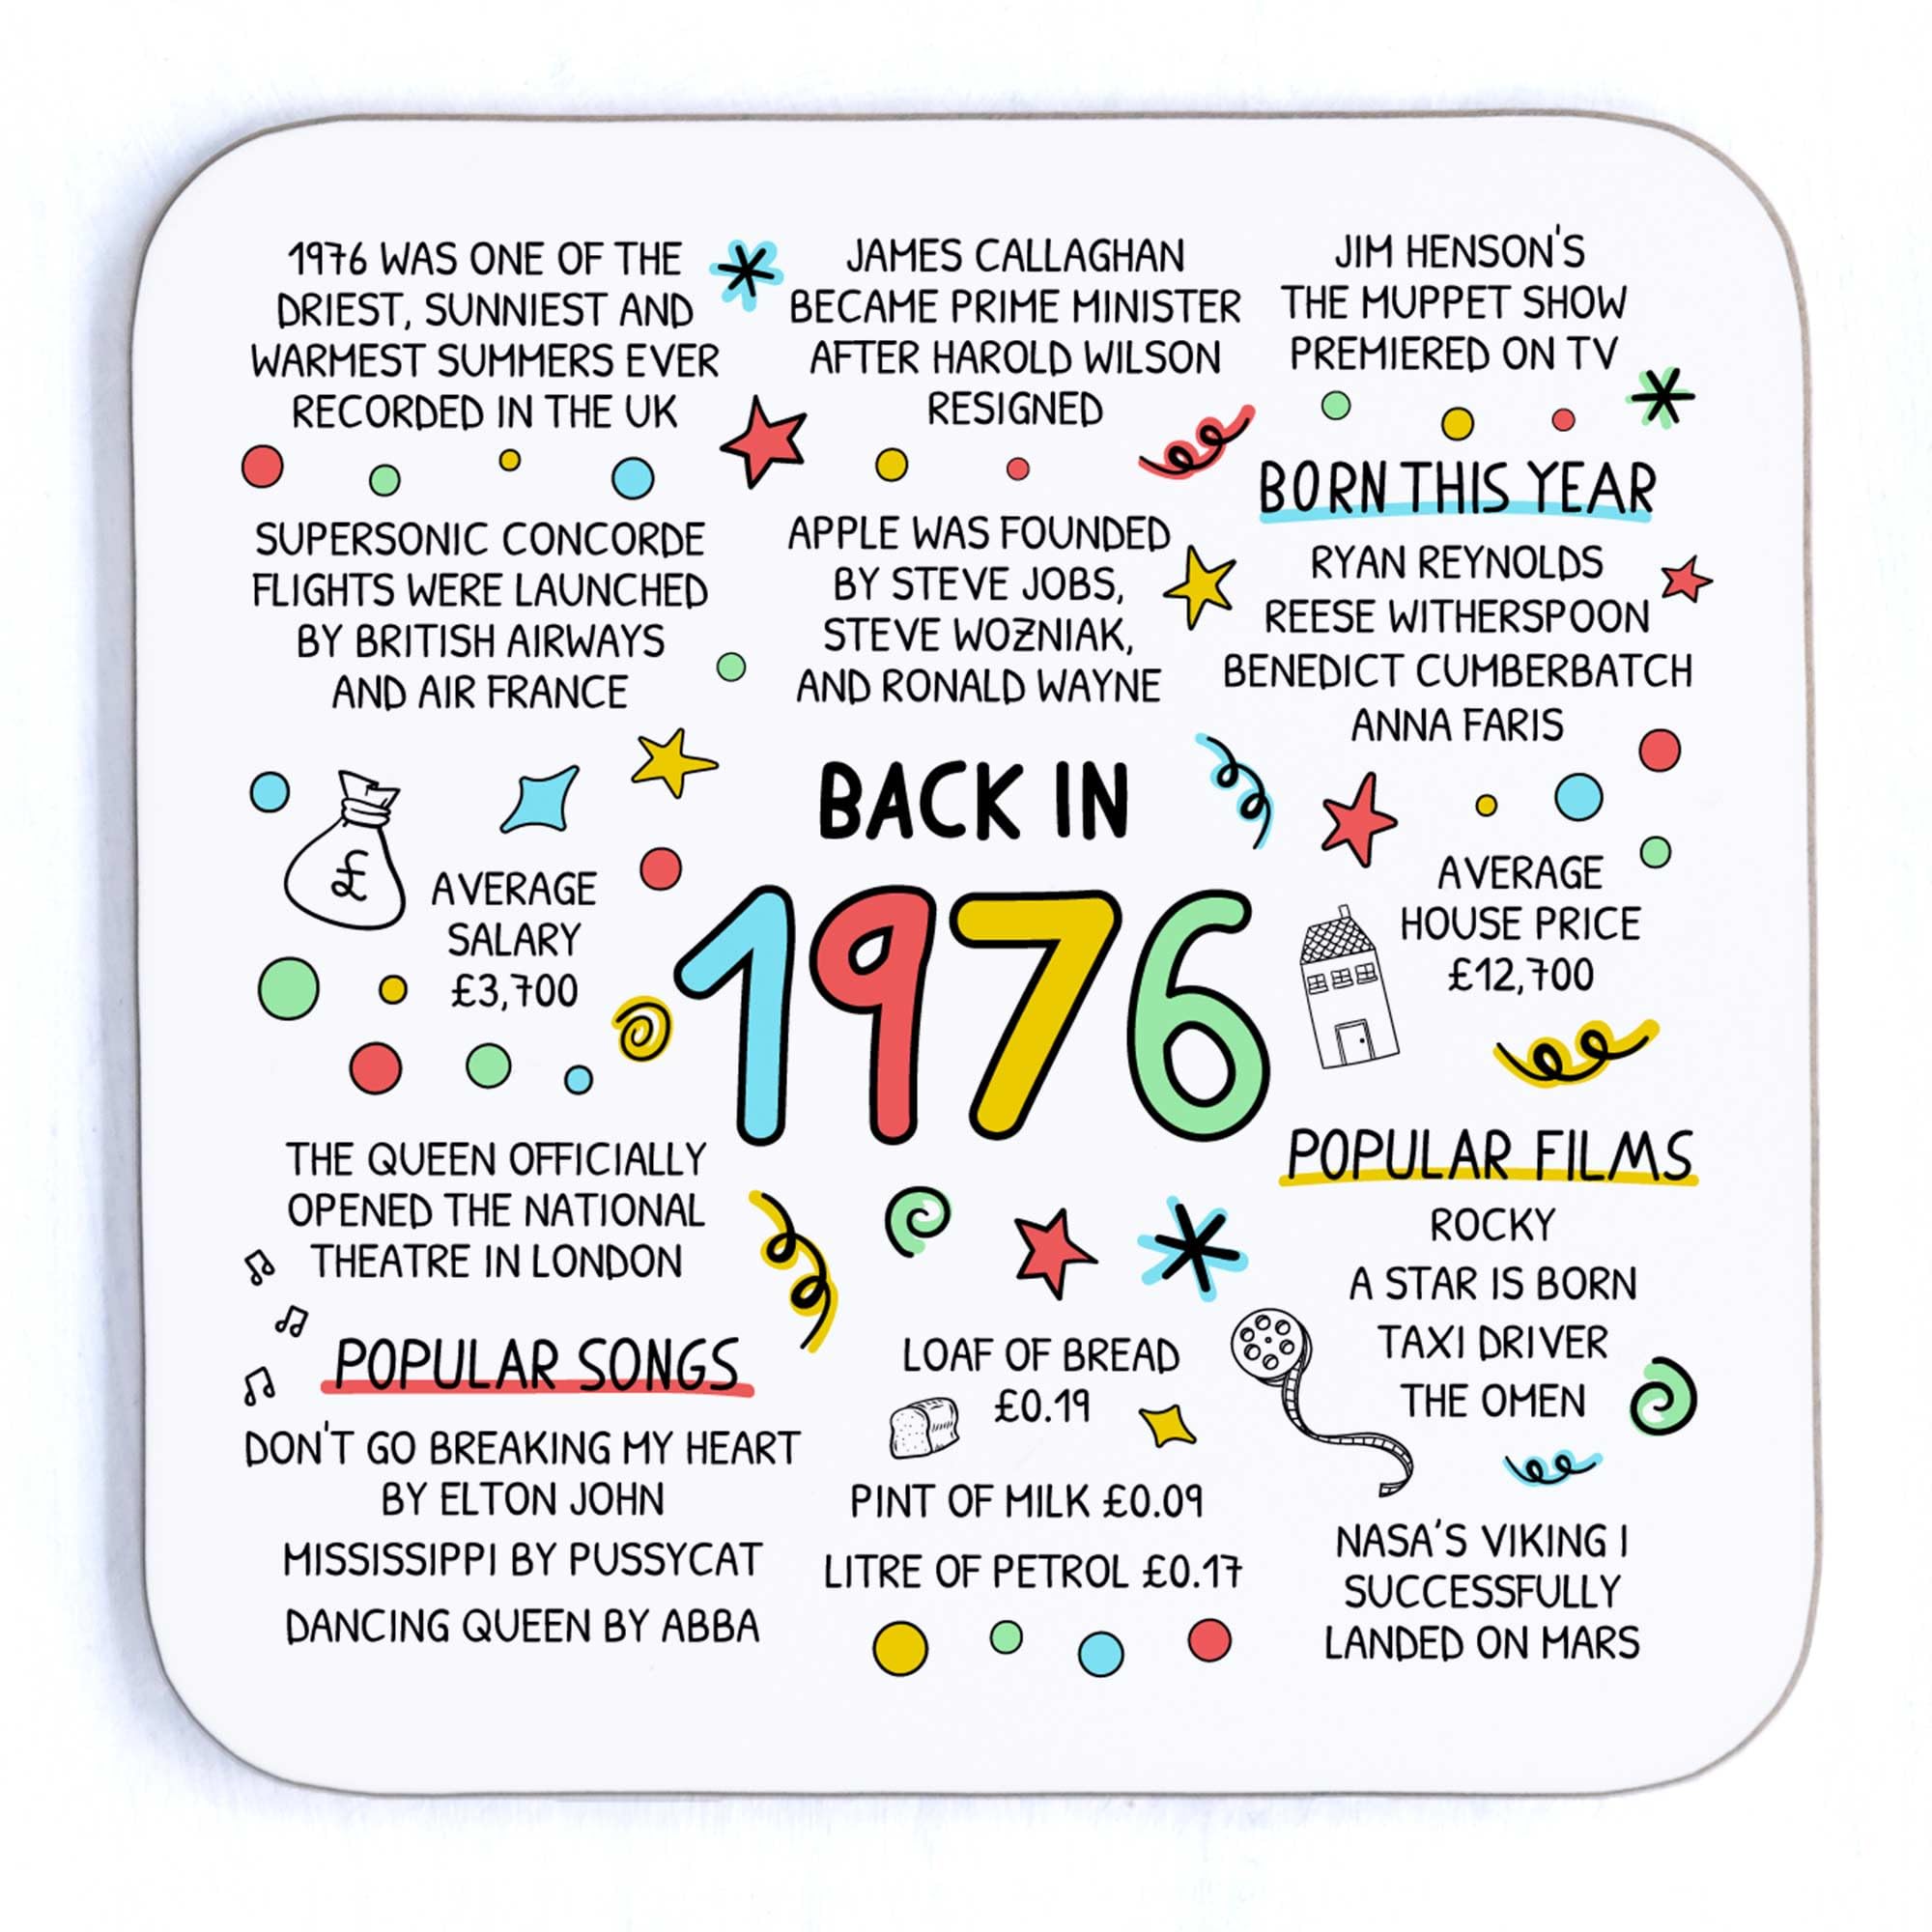 1976 WAS ONE OF THE
DRIEST, SUNNIEST AND
WARMEST SUMMERS EVER
RECORDED IN THE UK
JAMES CALLAGHAN
BECAME PRIME MINISTER
AFTER HAROLD WILSON
RESIGNED
JIM HENSON'S
THE MUPPET SHOW
PREMIERED ON TV
SUPERSONIC CONCORDE
FLIGHTS WERE LAUNCHED
BY BRITISH AIRWAYS
AND AIR FRANCE
APPLE WAS FOUNDED
BY STEVE JOBS,
STEVE WOZNIAK,
AND RONALD WAYNE
BORN THIS YEAR
RYAN REYNOLDS
REESE WITHERSPOON
BENEDICT CUMBERBATCH
ANNA FARIS
£
AVERAGE
SALARY
£3,700
BACK IN
1976
AVERAGE
HOUSE PRICE
£12,700
THE QUEEN OFFICIALLY
OPENED THE NATIONAL
THEATRE IN LONDON
POPULAR SONGS
DON'T GO BREAKING MY HEART
BY ELTON JOHN
MISSISSIPPI BY PUSSYCAT
DANCING QUEEN BY ABBA
LOAF OF BREAD
£0.19
PINT OF MILK £0.09
LITRE OF PETROL £0.17
POPULAR FILMS
ROCKY
A STAR IS BORN
TAXI DRIVER
THE OMEN
NASA'S VIKING I
SUCCESSFULLY
LANDED ON MARS